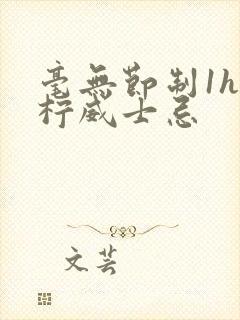 毫無節制1h
柠威士忌
文芸